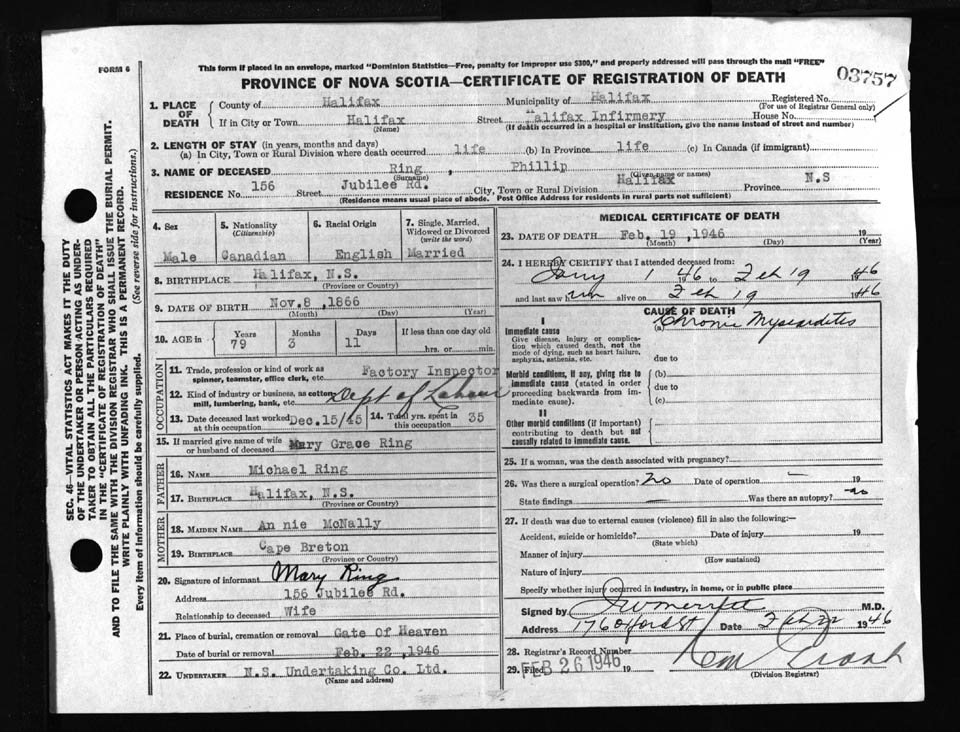 FORM 6
This form if placed in an envelope, marked "Dominion Statistics—Free, penalty for improper use $300," and properly addressed will pass through the mail "FREE"
PROVINCE OF NOVA SCOTIA—CERTIFICATE OF REGISTRATION OF DEATH
03757
1. PLACE OF DEATH
County of Halifax Municipality of Halifax Registered No.
(For use of Registrar General only)
If in City or Town Halifax Street Halifax Infirmery House No.
(Name) (If death occurred in a hospital or institution, give the name instead of street and number)
2. LENGTH OF STAY (in years, months and days)
(a) In City, Town or Rural Division where death occurred life (b) In Province life (c) In Canada (if immigrant)
3. NAME OF DECEASED Ring , Phillip
(Surname) (Given name or names)
RESIDENCE No. 156 Street Jubilee Rd. City, Town or Rural Division Halifax Province N.S
(Residence means usual place of abode. Post Office Address for residents in rural parts not sufficient)
4. Sex
Male
5. Nationality
(Citizenship)
Canadian
6. Racial Origin
English
7. Single, Married, Widowed or Divorced
(write the word)
Married
8. BIRTHPLACE Halifax, N.S.
(Province or Country)
9. DATE OF BIRTH Nov.8 ,1866
(Month) (Day) (Year)
10. AGE in
Years 79
Months 3
Days 11
If less than one day old
hrs. or min.
OCCUPATION
11. Trade, profession or kind of work as spinner, teamster, office clerk, etc. Factory Inspector
12. Kind of industry or business, as cotton mill, lumbering, bank, etc. Dept of Labour
13. Date deceased last worked at this occupation Dec.15/45
14. Total yrs. spent in this occupation 35
15. If married give name of wife or husband of deceased Mary Grace Ring
FATHER
16. NAME Michael Ring
17. BIRTHPLACE Halifax, N.S.
(Province or Country)
MOTHER
18. MAIDEN NAME An nie McNally
19. BIRTHPLACE Cape Breton
(Province or Country)
20. Signature of informant Mary Ring
Address 156 Jubilee Rd.
Relationship to deceased Wife
21. Place of burial, cremation or removal Gate Of Heaven
Date of burial or removal Feb. 22 ,1946
22. UNDERTAKER N.S. Undertaking Co. Ltd.
(Name and address)
MEDICAL CERTIFICATE OF DEATH
23. DATE OF DEATH Feb. 19 ,1946 19
(Month) (Day) (Year)
24. I HEREBY CERTIFY that I attended deceased from:
Jany 1 46 to Feb 19 1946
and last saw him alive on Feb 19 1946
CAUSE OF DEATH
I
Immediate cause
Give disease, injury or complication which caused death, not the mode of dying, such as heart failure, asphyxia, asthenia, etc.
(a) Chronic Myocarditis
due to
Morbid conditions, if any, giving rise to immediate cause (stated in order proceeding backwards from immediate cause).
(b)
due to
(c)
II
Other morbid conditions (if important) contributing to death but not causally related to immediate cause.
25. If a woman, was the death associated with pregnancy?
26. Was there a surgical operation? no Date of operation — 19
State findings — Was there an autopsy? no
27. If death was due to external causes (violence) fill in also the following:—
Accident, suicide or homicide? Date of injury 19
(State which)
Manner of injury
(How sustained)
Nature of injury
Specify whether injury occurred in industry, in home, or in public place
Signed by M.D.
Address 176 Oxford St Date Feb 22 1946
28. Registrar's Record Number
29. Filed FEB 26 1946 19
(Division Registrar)
SEC. 46—VITAL STATISTICS ACT MAKES IT THE DUTY
OF THE UNDERTAKER OR PERSON ACTING AS UNDER-
TAKER TO OBTAIN ALL THE PARTICULARS REQUIRED
IN THE "CERTIFICATE OF REGISTRATION OF DEATH"
AND TO FILE THE SAME WITH THE DIVISION REGISTRAR WHO SHALL ISSUE THE BURIAL PERMIT.
WRITE PLAINLY WITH UNFADING INK. THIS IS A PERMANENT RECORD.
Every item of information should be carefully supplied. (See reverse side for instructions.)